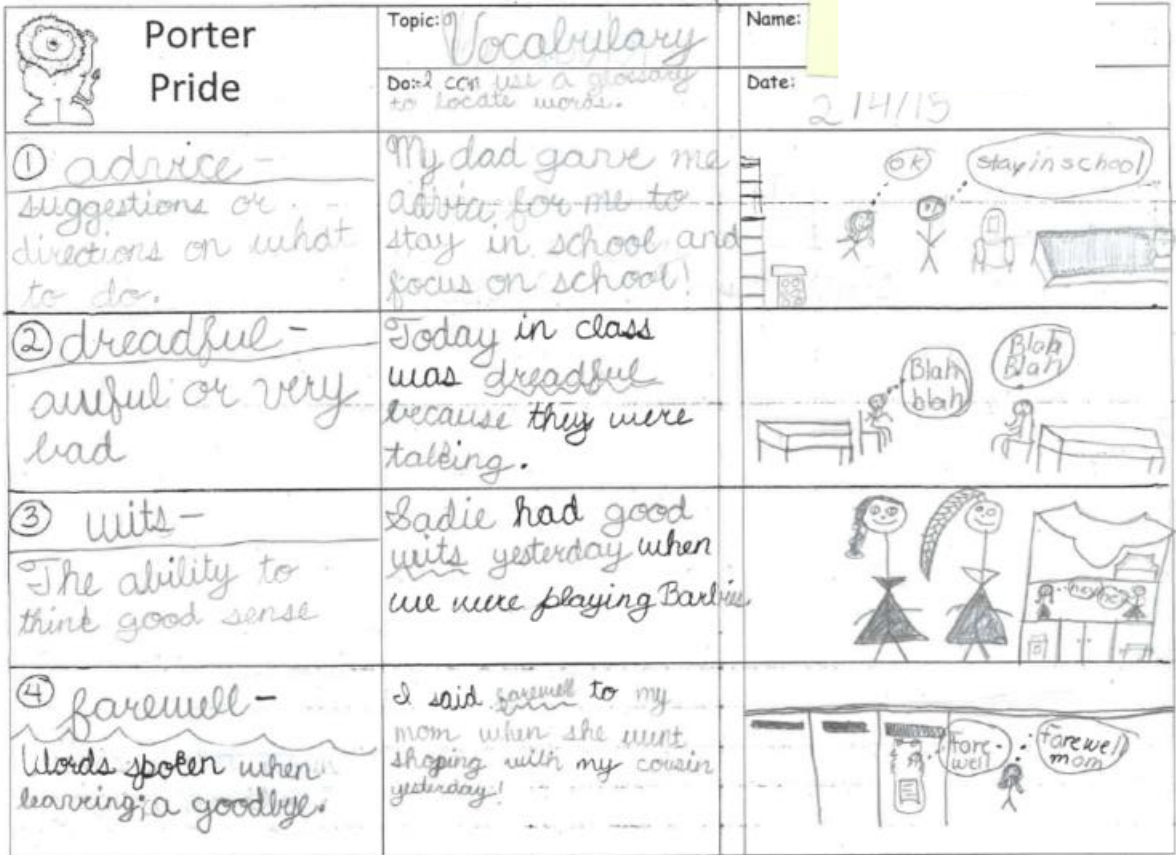 Porter
Pride
Topic: Vocabulary
Do: I can use a glossary
to locate words.
Name:
Date:
2/4/15
① advice -
suggestions or
directions on what
to do.
My dad gave me
advice for me to
stay in school and
focus on school!
ok
stay in school
② dreadful -
awful or very
bad
Today in class
was dreadful
because they were
talking.
Blah
blah
Blah
Blah
③ wits -
The ability to
think good sense
Sadie had good
wits yesterday when
we were playing Barbies
hey
④ farewell -
Words spoken when
leaving; a goodbye.
I said farewell to my
mom when she went
shoping with my cousin
yesterday!
Fare-
well
farewell
mom